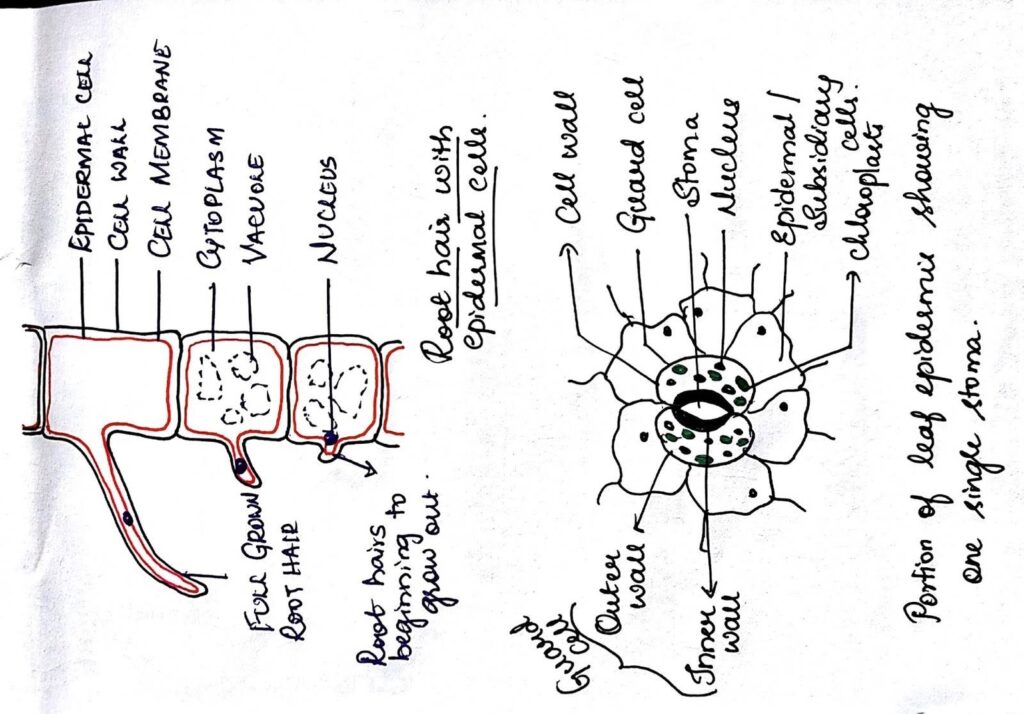 EPIDERMAL CELL
CELL WALL
CELL MEMBRANE
CYTOPLASM
VACUOLE
NUCLEUS
FULL GROWN
ROOT HAIR
Root hairs
beginning to
grow out.
Root hair with
epidermal cells.
Cell wall
Guard cell
Stoma
Nucleus
Epidermal /
Subsidiary
cells.
Chloroplasts
Guard
cell
Outer
wall
Inner
wall
Portion of leaf epidermis showing
one single stoma.